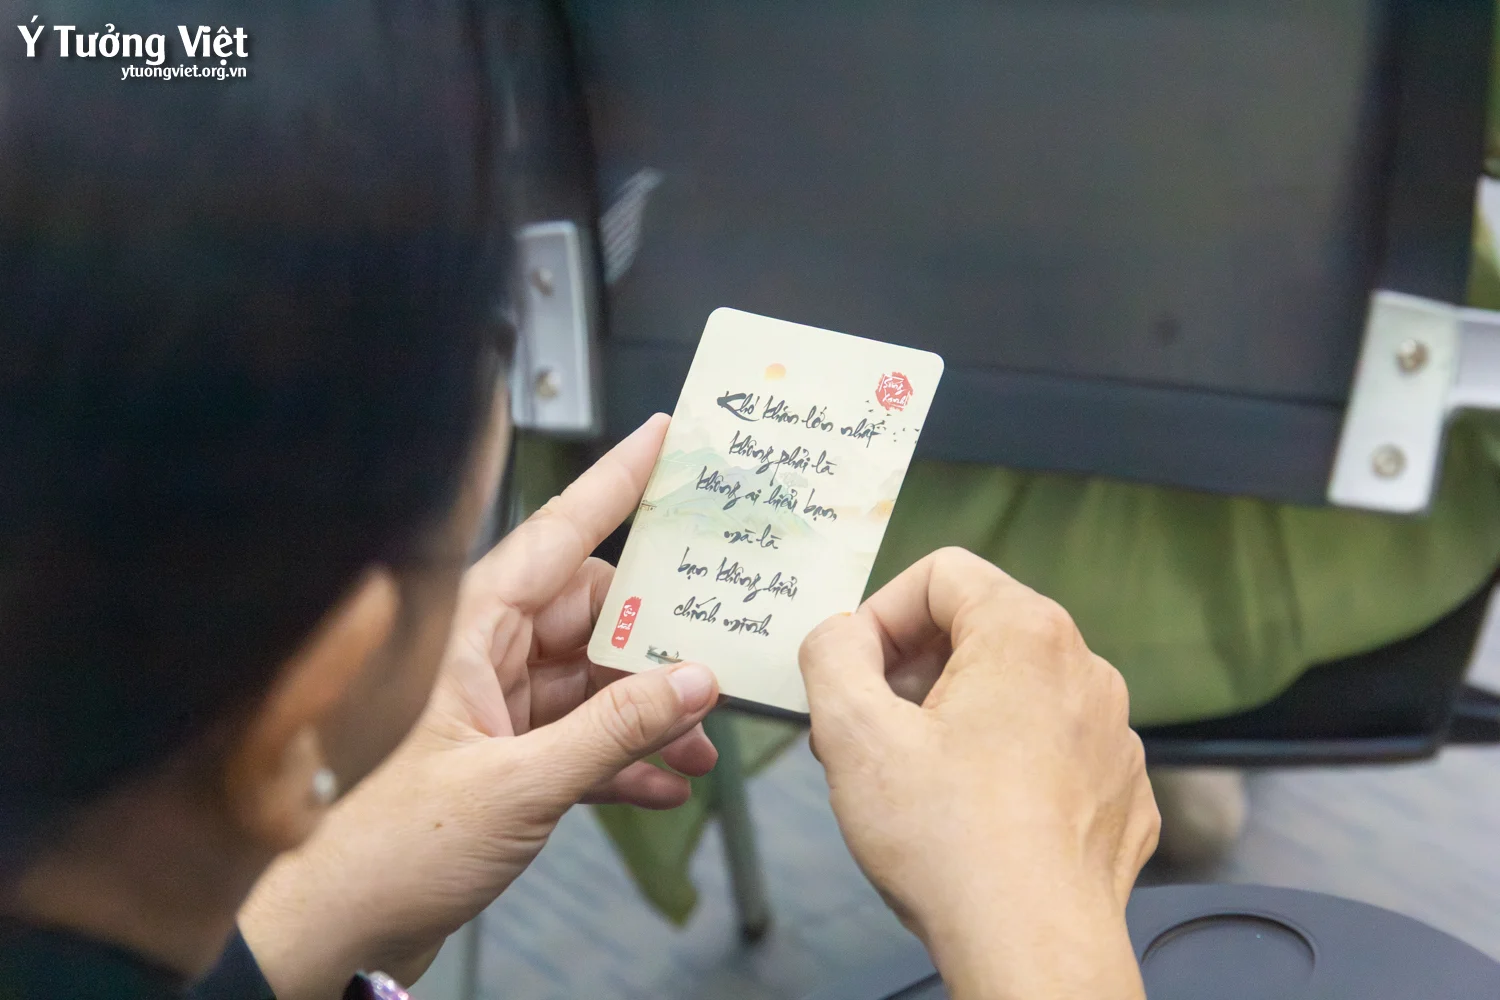 Ý Tưởng Việt
ytuongviet.org.vn
Khó khăn lớn nhất
không phải là
không ai hiểu bạn
mà là
bạn không hiểu
chính mình